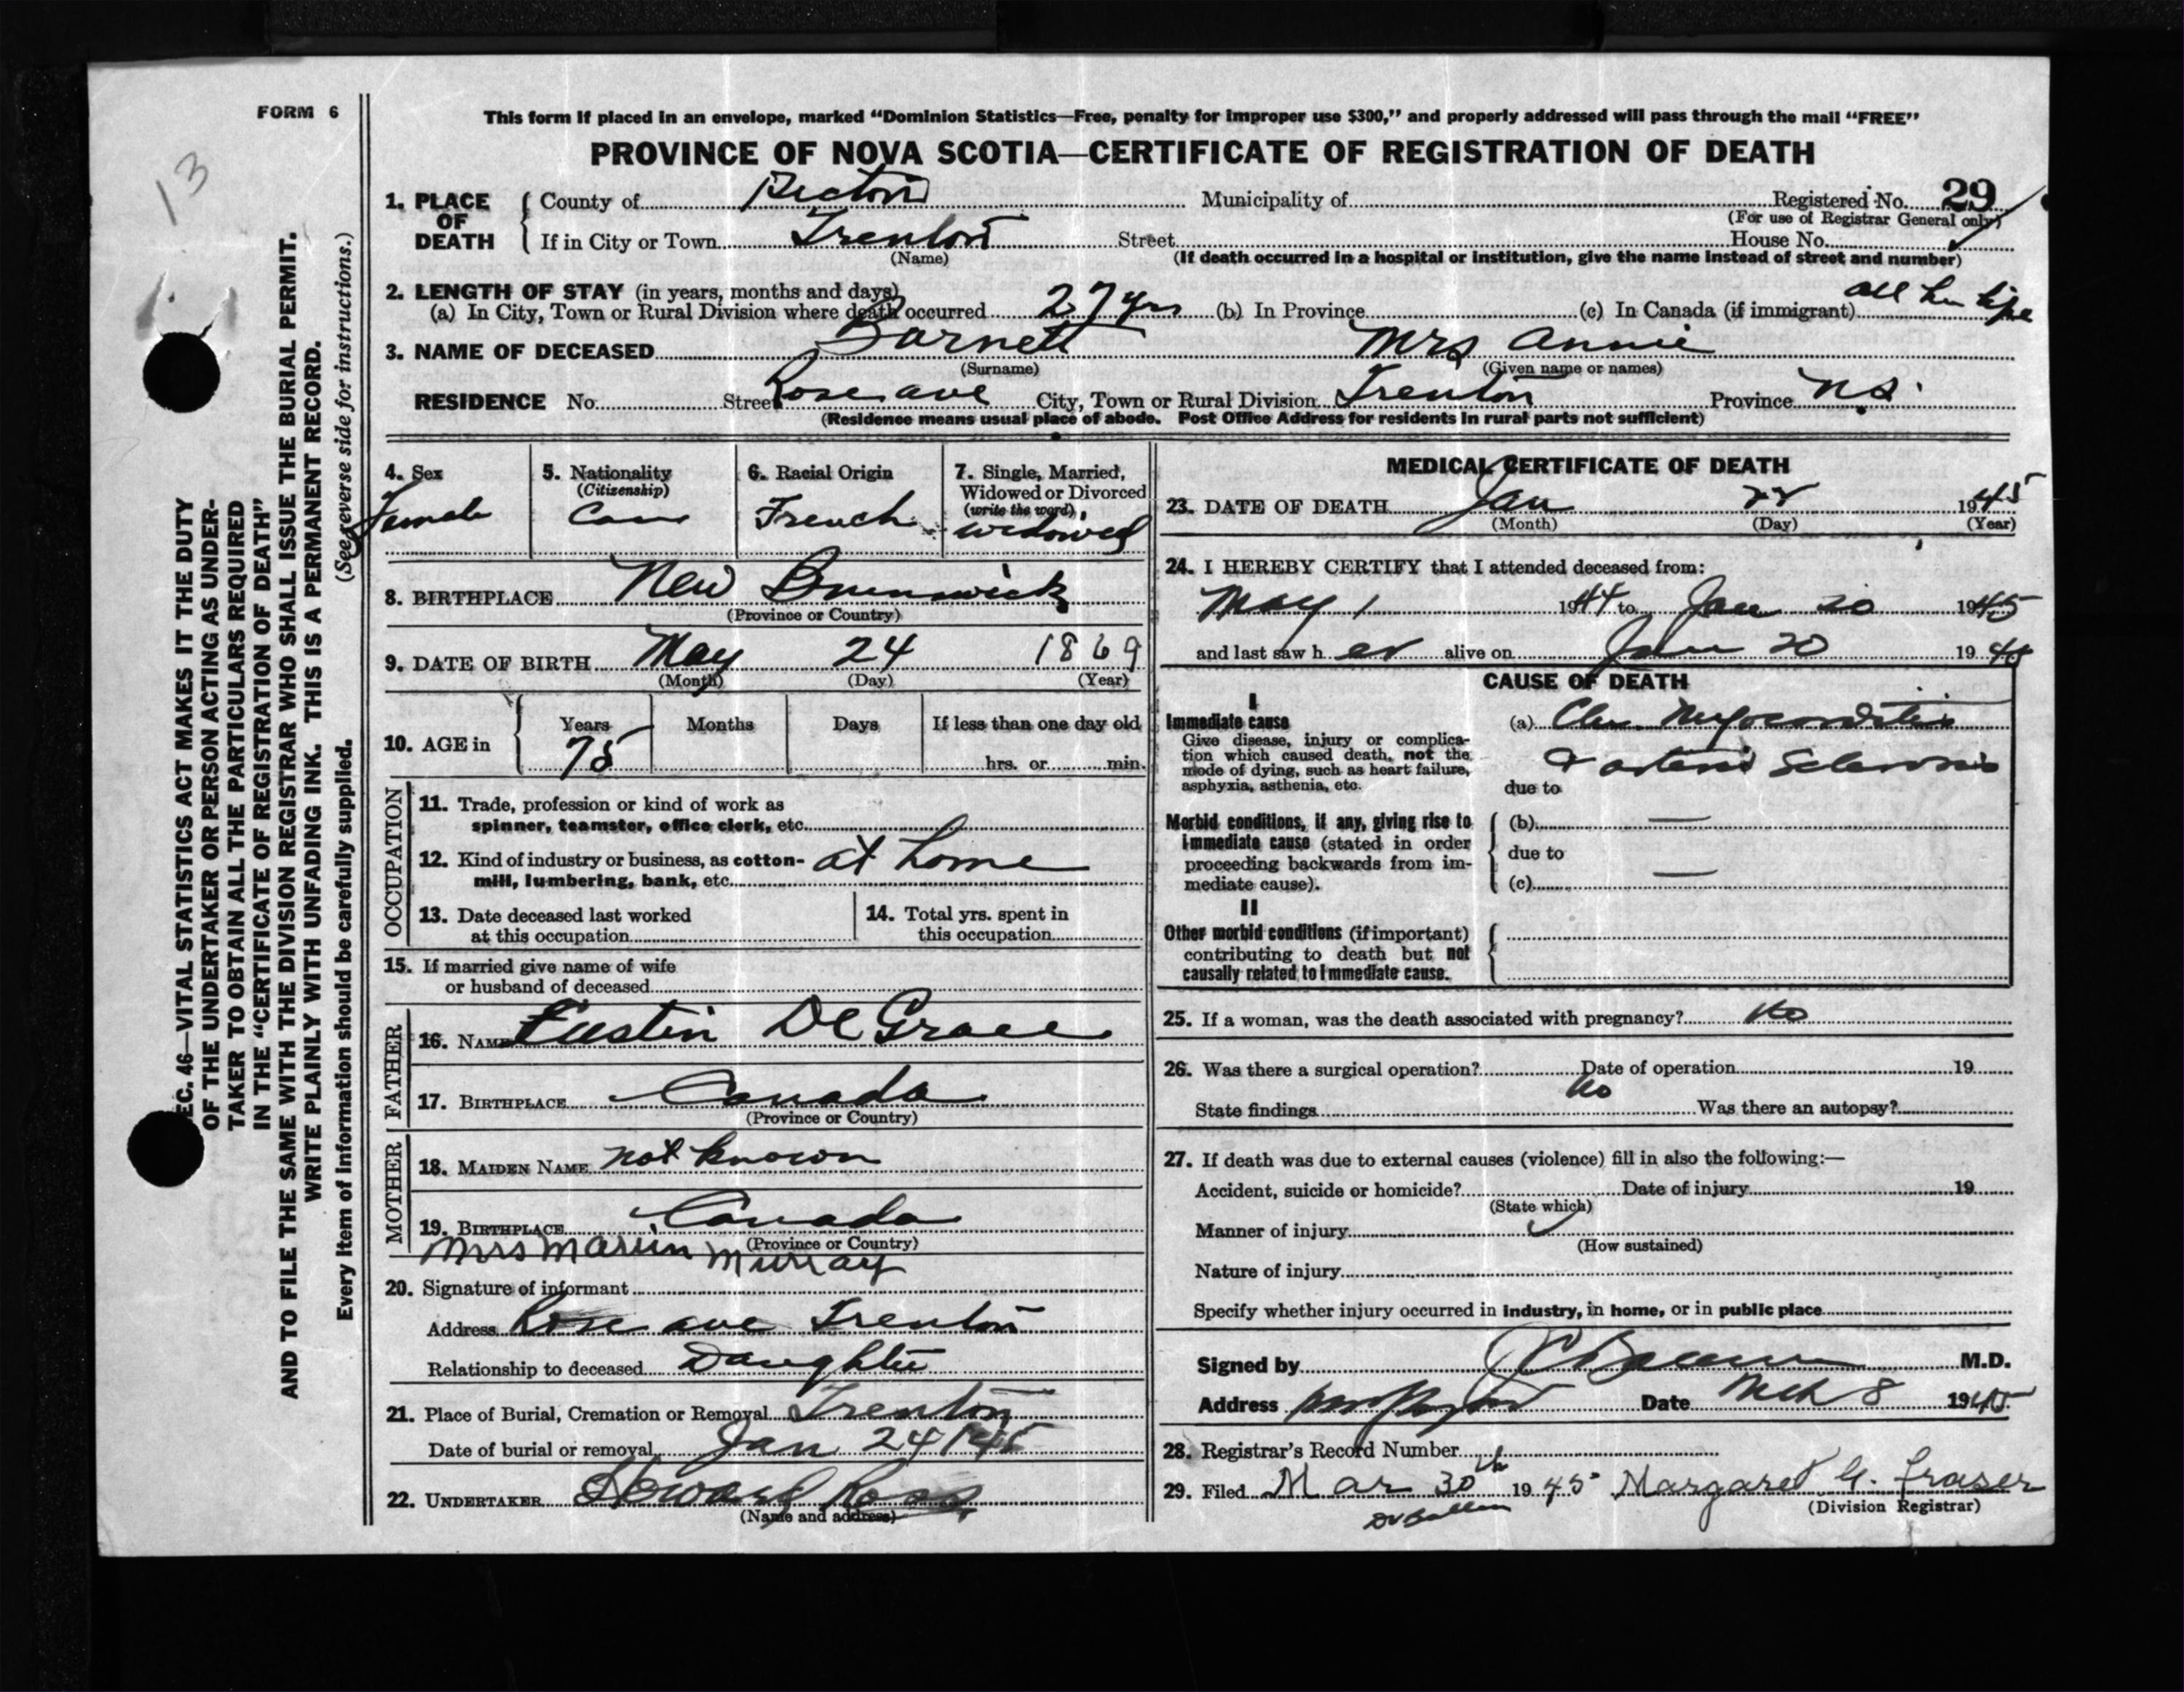 FORM 6
13
SEC. 46—VITAL STATISTICS ACT MAKES IT THE DUTY
OF THE UNDERTAKER OR PERSON ACTING AS UNDER-
TAKER TO OBTAIN ALL THE PARTICULARS REQUIRED
IN THE "CERTIFICATE OF REGISTRATION OF DEATH"
AND TO FILE THE SAME WITH THE DIVISION REGISTRAR WHO SHALL ISSUE THE BURIAL PERMIT.
WRITE PLAINLY WITH UNFADING INK. THIS IS A PERMANENT RECORD.
Every item of information should be carefully supplied. (See reverse side for instructions.)
This form if placed in an envelope, marked "Dominion Statistics—Free, penalty for improper use $300," and properly addressed will pass through the mail "FREE"
PROVINCE OF NOVA SCOTIA—CERTIFICATE OF REGISTRATION OF DEATH
1. PLACE OF DEATH County of Pictou Municipality of Registered No. 29
(For use of Registrar General only)
If in City or Town Trenton Street House No.
(Name) (If death occurred in a hospital or institution, give the name instead of street and number)
2. LENGTH OF STAY (in years, months and days)
(a) In City, Town or Rural Division where death occurred 27 yrs (b) In Province (c) In Canada (if immigrant) all her life
3. NAME OF DECEASED Barnett Mrs Annie
(Surname) (Given name or names)
RESIDENCE No. Street Rose ave City, Town or Rural Division Trenton Province N.S.
(Residence means usual place of abode. Post Office Address for residents in rural parts not sufficient)
4. Sex
Female
5. Nationality
(Citizenship)
Can
6. Racial Origin
French
7. Single, Married,
Widowed or Divorced
(write the word)
widowed
8. BIRTHPLACE New Brunswick
(Province or Country)
9. DATE OF BIRTH May 24 1869
(Month) (Day) (Year)
10. AGE in Years Months Days If less than one day old
75 hrs. or min.
OCCUPATION
11. Trade, profession or kind of work as
spinner, teamster, office clerk, etc.
12. Kind of industry or business, as cotton- at home
mill, lumbering, bank, etc.
13. Date deceased last worked
at this occupation
14. Total yrs. spent in
this occupation
15. If married give name of wife
or husband of deceased
FATHER
16. NAME Eustin De Grace
17. BIRTHPLACE Canada
(Province or Country)
MOTHER
18. MAIDEN NAME not known
19. BIRTHPLACE Canada
(Province or Country)
Mrs Marvin Murray
20. Signature of informant
Address Rose ave Trenton
Relationship to deceased Daughter
21. Place of Burial, Cremation or Removal Trenton
Date of burial or removal Jan 24/45
22. UNDERTAKER Howard Ross
(Name and address)
MEDICAL CERTIFICATE OF DEATH
23. DATE OF DEATH Jan 22 1945
(Month) (Day) (Year)
24. I HEREBY CERTIFY that I attended deceased from:
May 1 1944 to Jan 20 1945
and last saw h er alive on Jan 20 1945
CAUSE OF DEATH
I
Immediate cause
Give disease, injury or complica-
tion which caused death, not the
mode of dying, such as heart failure,
asphyxia, asthenia, etc.
(a) Chr. Myocarditis
& arterio Sclerosis
due to
Morbid conditions, if any, giving rise to
immediate cause (stated in order
proceeding backwards from im-
mediate cause).
(b) —
due to
(c) —
II
Other morbid conditions (if important)
contributing to death but not
causally related to immediate cause.
25. If a woman, was the death associated with pregnancy? No
26. Was there a surgical operation? Date of operation 19
No
State findings Was there an autopsy?
27. If death was due to external causes (violence) fill in also the following:—
Accident, suicide or homicide? Date of injury 19
(State which)
Manner of injury
(How sustained)
Nature of injury
Specify whether injury occurred in industry, in home, or in public place
Signed by M.D.
Address Date Mch 8 1945
28. Registrar's Record Number
29. Filed Mar 30th 1945 Margaret G. Fraser
(Division Registrar)